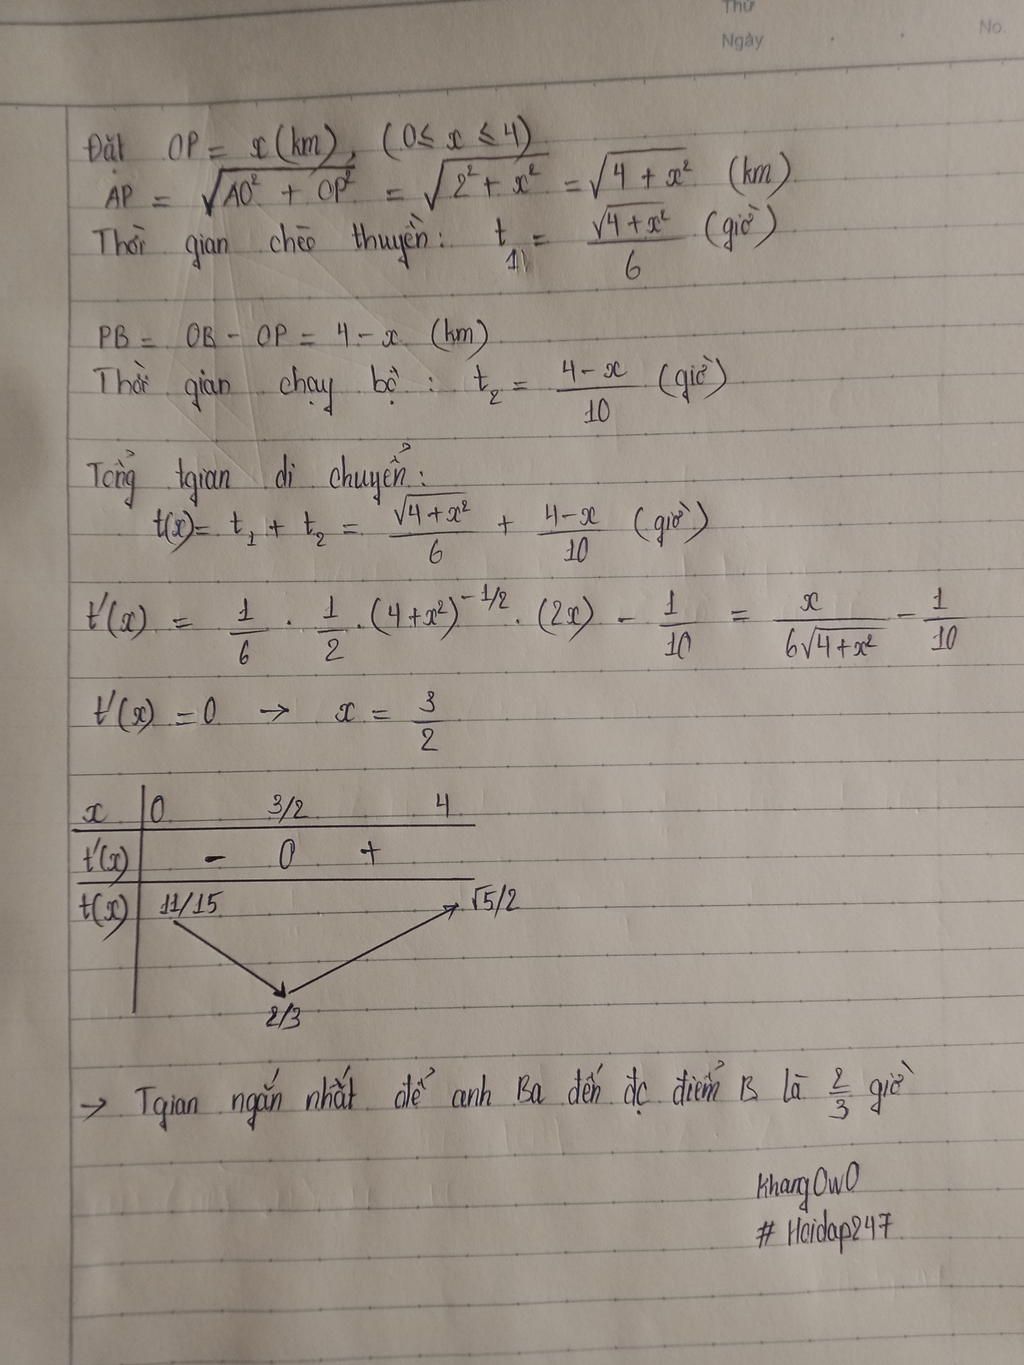 Thứ
Ngày
No.
Đặt OP = x (km), (0 ≤ x ≤ 4)
AP = √(AO² + OP²) = √(2² + x²) = √(4 + x²) (km)
Thời gian chèo thuyền: t₁ = √(4+x²)/6 (giờ)
PB = OB - OP = 4 - x (km)
Thời gian chạy bộ: t₂ = (4-x)/10 (giờ)
Tổng tgian di chuyển:
t(x) = t₁ + t₂ = √(4+x²)/6 + (4-x)/10 (giờ)
t'(x) = 1/6 . 1/2 . (4+x²)^(-1/2) . (2x) - 1/10 = x/(6√(4+x²)) - 1/10
t'(x) = 0 → x = 3/2
x 0 3/2 4
t'(x) - 0 +
t(x) 11/15 √5/2
2/3
→ Tgian ngắn nhất để anh Ba đến đc điểm B là 2/3 giờ
KhangOwO
# Hoidap247